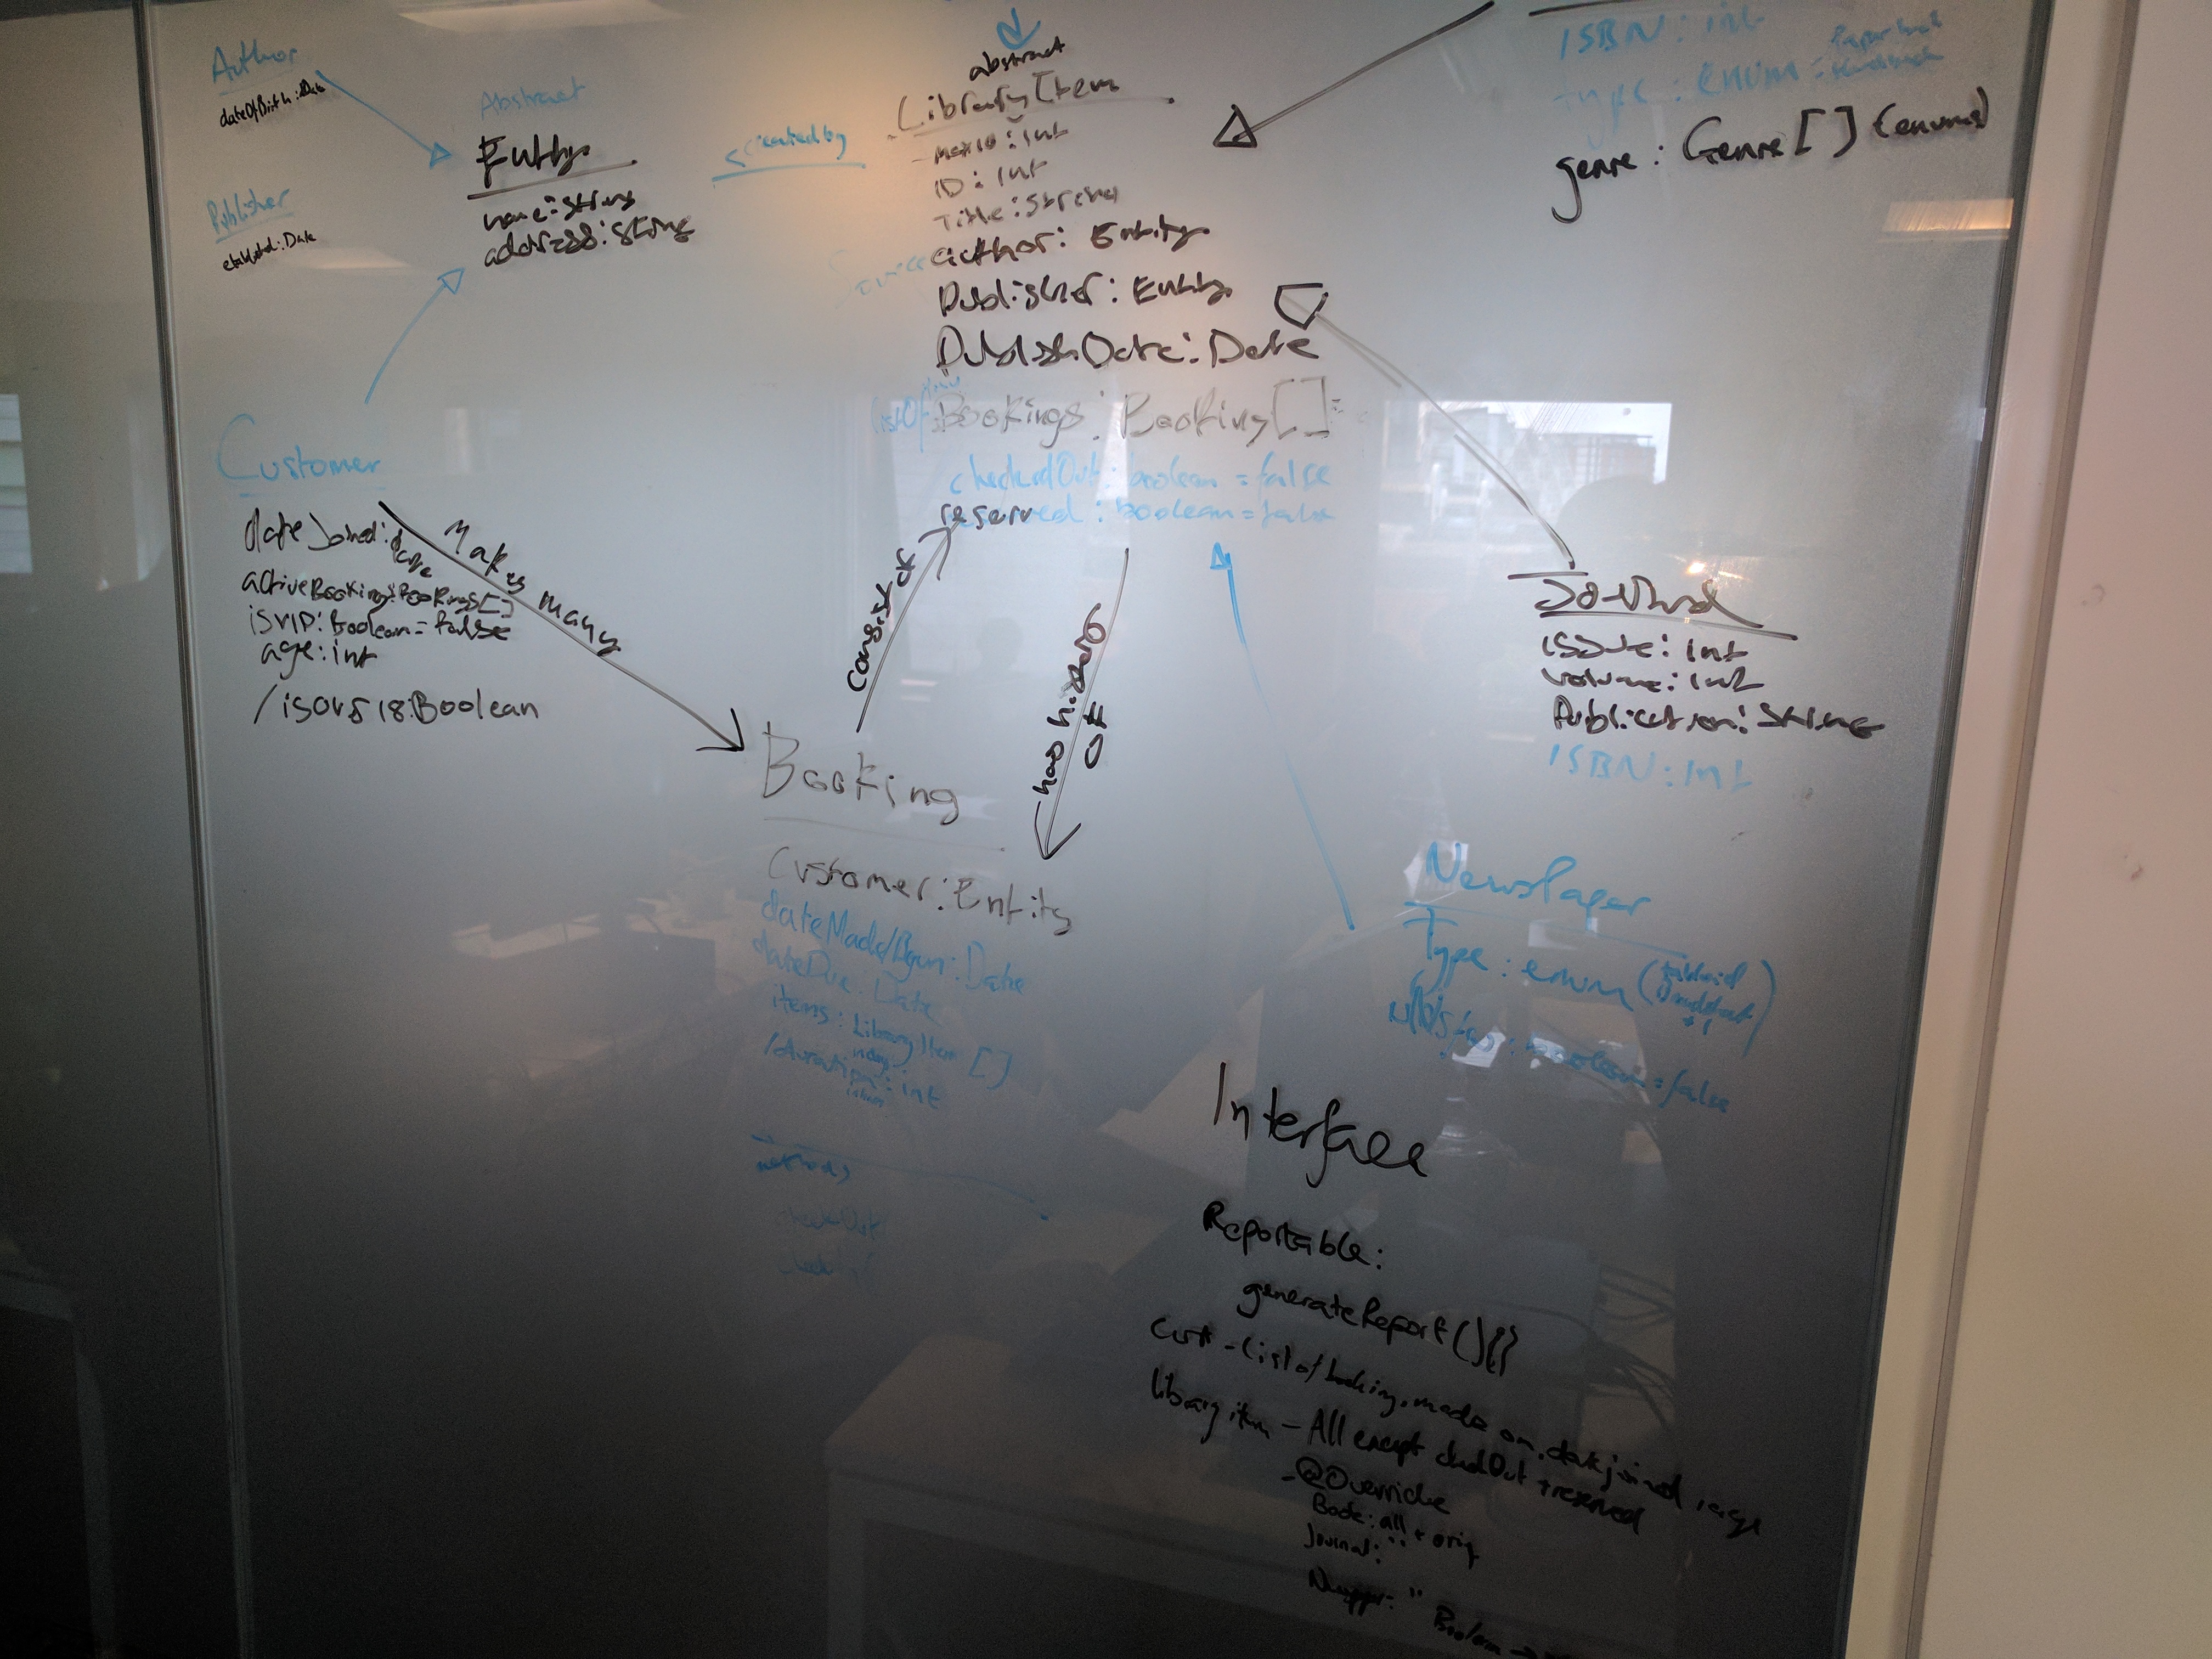 Author
dateOfBirth: Date
Publisher
Abstract
Entity
name: String
address: String
created by
abstract
Library Item
- maxID: int
ID: int
Title: String
author: Entity
Publisher: Entity
PublishDate: Date
listOf Bookings: Booking[] =
checkedOut: boolean = false
reserved: boolean = false
ISBN: int
type: enum =
genre: Genre[] (enums)
Customer
dateJoined: date
activeBookings: Bookings[]
isVIP: Boolean = false
age: int
/isOvr18: Boolean
Makes many
consist of
Journal
issue: int
volume: int
Publication: String
ISBN: int
Booking
Customer: Entity
dateMade/Bgun: Date
dateDue: Date
items: Library Item []
/duration: int
methods
NewsPaper
Type: enum (tabloid
+1)
: boolean = false
Interface
Reportable:
generateReport(){}
Cust - list of bookings made on, date joined, age
library item - All except checkedOut + reserved
- @Override
Book: all + orig
Journal: "
Newspaper: " Boolean →